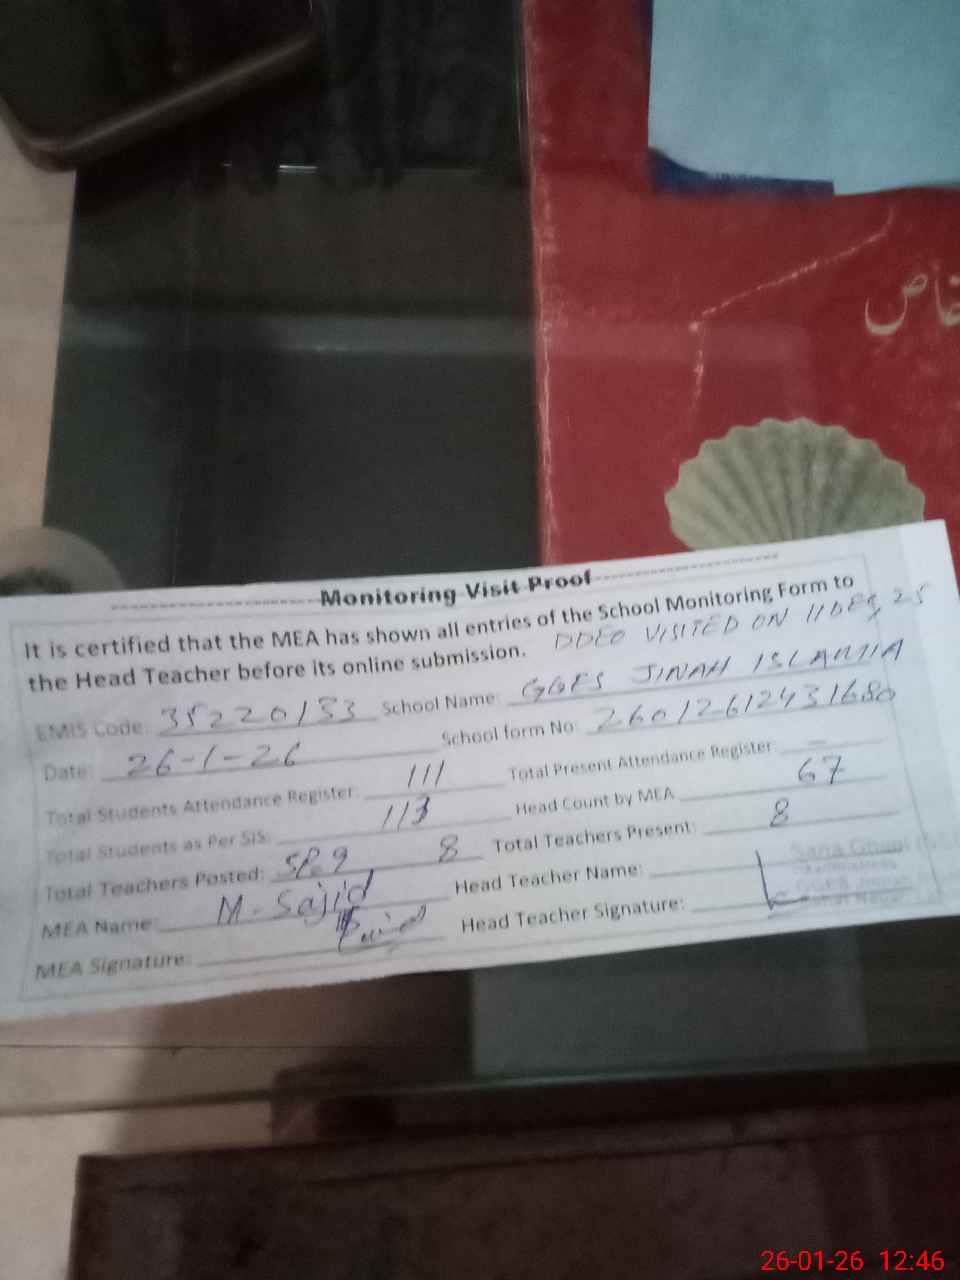 خاص
Monitoring Visit Proof
It is certified that the MEA has shown all entries of the School Monitoring Form to
the Head Teacher before its online submission. DDEO VISITED ON 11 DEC, 25
EMIS Code: 35220133 School Name: GGES JINAH ISLAMIA
Date: 26-1-26 School form No: 26012612431680
Total Students Attendance Register: 111 Total Present Attendance Register: —
Total Students as Per SIS: 113 Head Count by MEA 67
Total Teachers Posted: 8 Total Teachers Present: 8
MEA Name: M. Sajid Head Teacher Name:
MEA Signature: Head Teacher Signature:
26-01-26 12:46